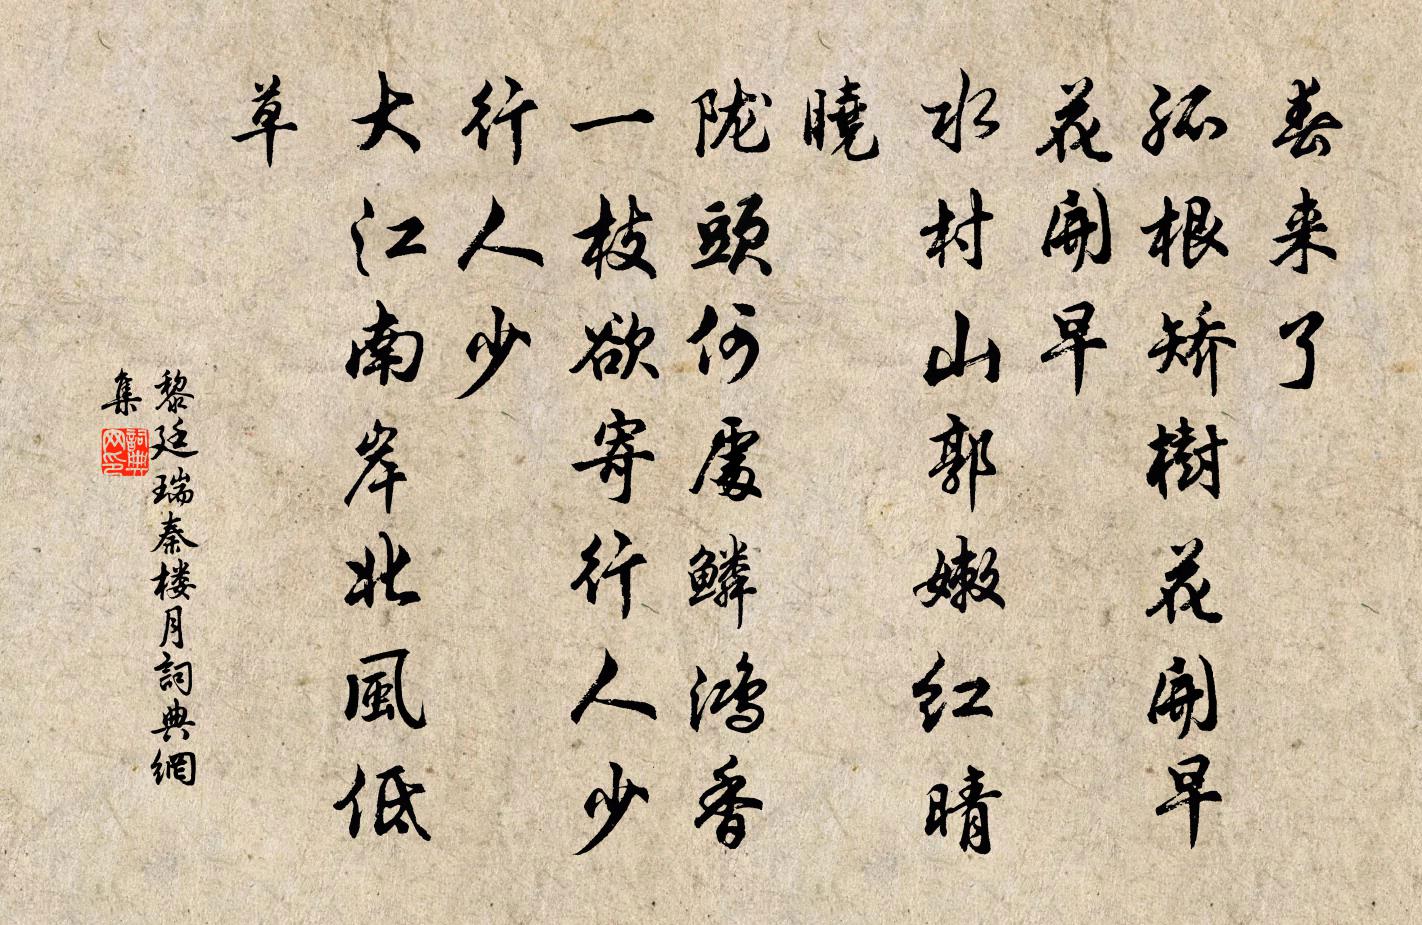 春来了
孤根矫樹花開早
花開早
水村山郭嫩红晴
曉
陇頭何處鳞鸿香
一枝欲寄行人少
行人少
大江南岸北風低
草
黎廷瑞秦楼月詞典網
集
詞典网印